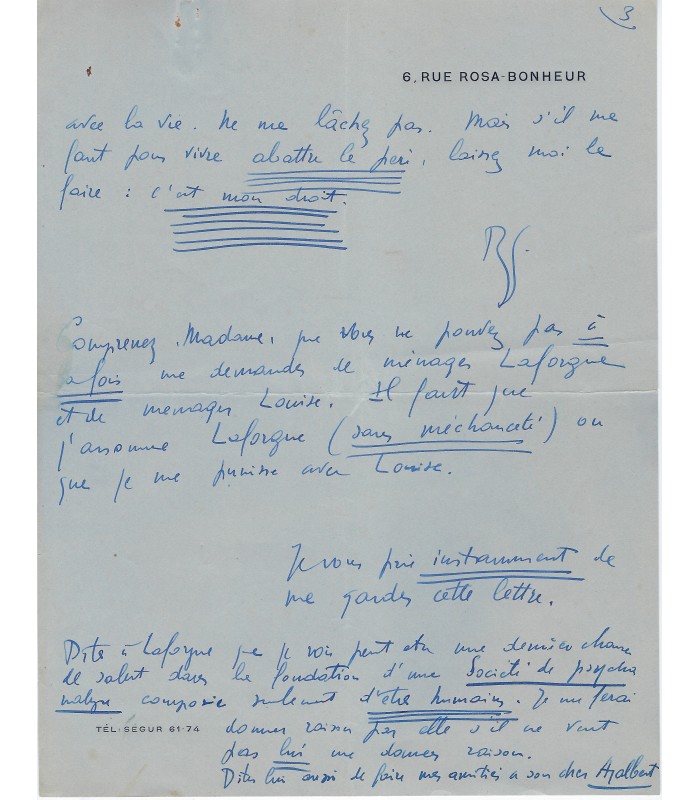 3
6, RUE ROSA-BONHEUR
avec la vie. Ne me lâchez pas. Mais s'il me
faut pour vivre abattre le père, laissez moi le
faire : c'est mon droit.
Comprenez, Madame, que vous ne pouvez pas à
la fois me demander de ménager Laforgue
et de ménager Louise. Il faut que
j'assomme Laforgue (sans méchanceté) ou
que je me punisse avec Louise.
Je vous prie instamment de
me garder cette lettre.
Dites à Laforgue que je vois peut etre une dernière chance
de salut dans la fondation d'une Société de psycha
nalyse composée seulement d'être humains. Je me ferai
TÉL: SÉGUR 61-74
donner raison par elle s'il ne veut
pas lui me donner raison.
Dites lui aussi de faire mes amitiés à son cher